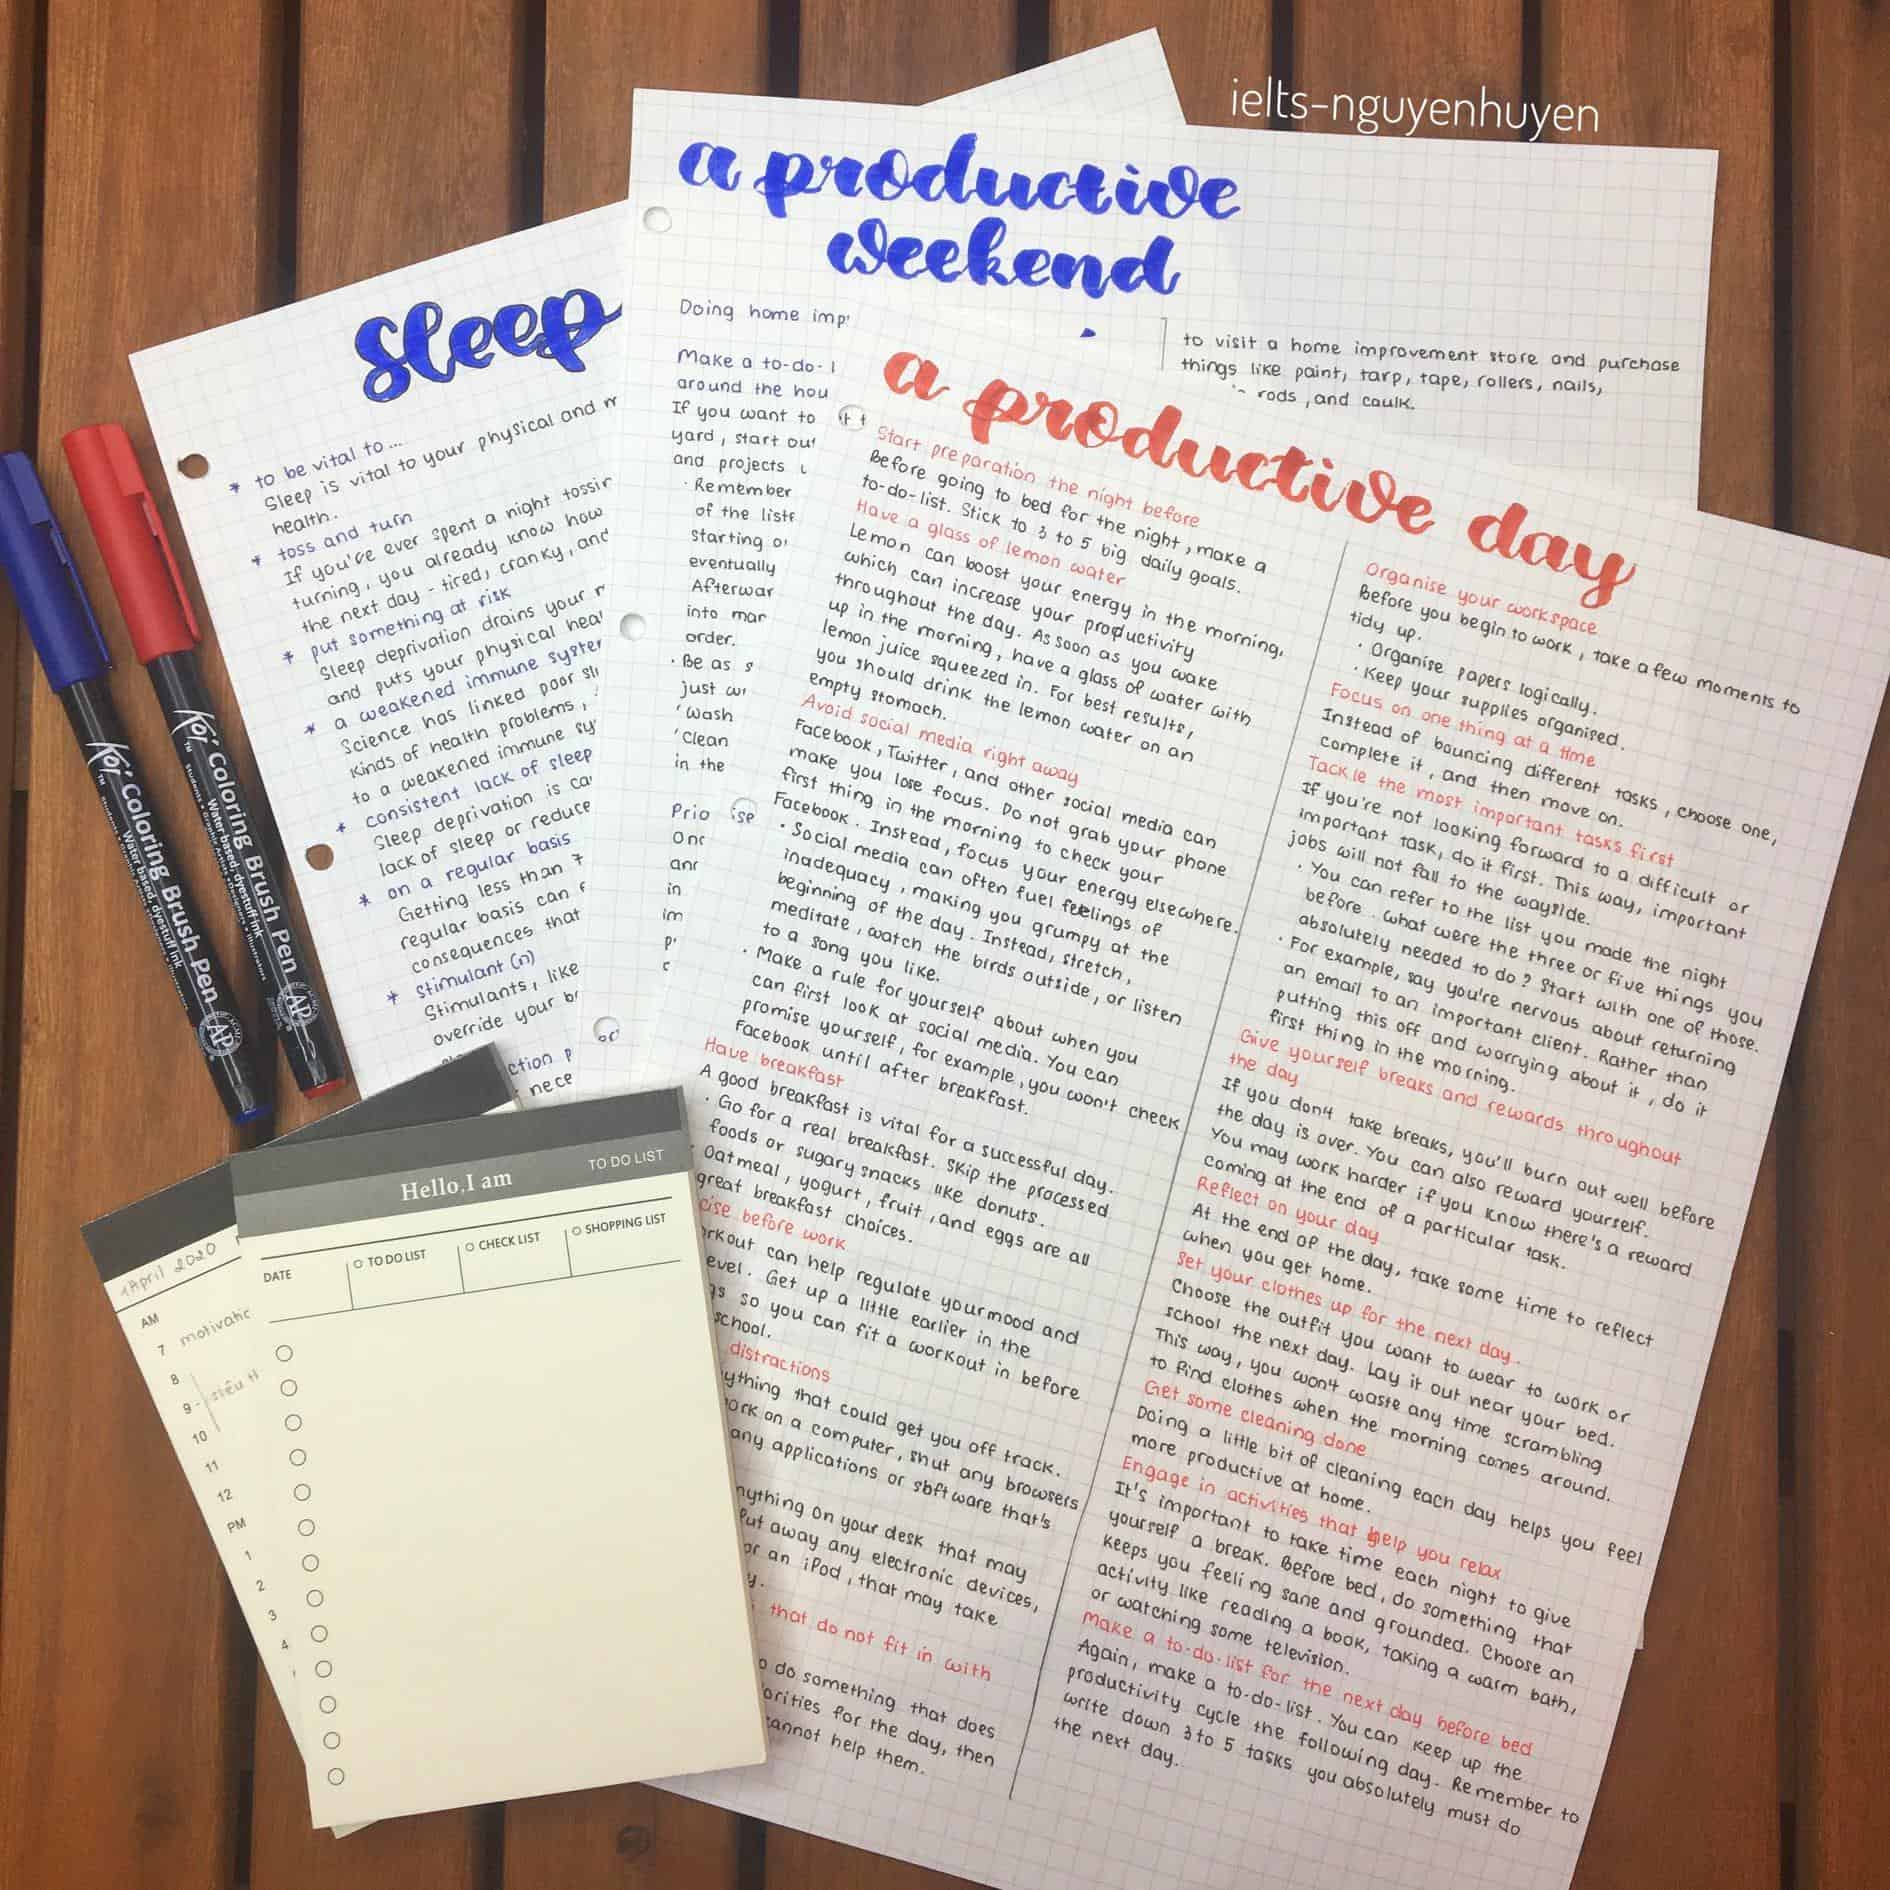 ielts-nguyenhuyen
a productive
weekend
Doing home imp
Make a to-do-l
around the hou
If you want to
yard, start out
and projects
· Remember
of the liste
starting o
eventually
Afterwar
into mar
order.
· Be as s
just wr
'wash
'clean
in the
Prio
Onc
and
in
im
to visit a home improvement store and purchase
things like paint, tarp, tape, rollers, nails,
rods, and caulk.
sleep
* to be vital to...
Sleep is vital to your physical and m
health.
* toss and turn
If you've ever spent a night tossin
turning, you already know how
the next day - tired, cranky, and
* put something at risk
Sleep deprivation drains your m
and puts your physical heal
* a weakened immune system
Science has linked poor sl
kinds of health problems,
to a weakened immune sy
* consistent lack of sleep
Sleep deprivation is ca
lack of sleep or reduce
* on a regular basis
Getting less than 7
regular basis can
consequences that
* stimulant (n)
Stimulants, like
override your b
ction p
nece
a productive day
Start preparation the night before
Before going to bed for the night, make a
to-do-list. Stick to 3 to 5 big daily goals.
Have a glass of lemon water
Lemon can boost your energy in the morning,
which can increase your productivity
throughout the day. As soon as you wake
up in the morning, have a glass of water with
lemon juice squeezed in. For best results,
you should drink the lemon water on an
empty stomach.
Avoid social media right away
Facebook, Twitter, and other social media can
make you lose focus. Do not grab your phone
first thing in the morning to check your
Facebook. Instead, focus your energy elsewhere.
· Social media can often fuel feelings of
inadequacy, making you grumpy at the
beginning of the day. Instead, stretch,
meditate, watch the birds outside, or listen
to a song you like.
· Make a rule for yourself about when you
can first look at social media. You can
promise yourself, for example, you won't check
Facebook until after breakfast.
Have breakfast
A good breakfast is vital for a successful day.
· Go for a real breakfast. Skip the processed
foods or sugary snacks like donuts.
· Oatmeal, yogurt, fruit, and eggs are all
great breakfast choices.
cise before work
orkout can help regulate your mood and
evel. Get up a little earlier in the
gs so you can fit a workout in before
school.
distractions
ything that could get you off track.
ork on a computer, shut any browsers
any applications or software that's
nything on your desk that may
Put away any electronic devices,
or an iPod, that may take
y.
that do not fit in with
o do something that does
iorities for the day, then
cannot help them.
Organise your workspace
Before you begin to work, take a few moments to
tidy up.
· Organise papers logically.
· Keep your supplies organised.
Focus on one thing at a time
Instead of bouncing different tasks, choose one,
complete it, and then move on.
Tackle the most important tasks first
If you're not looking forward to a difficult or
important task, do it first. This way, important
jobs will not fall to the wayside.
· You can refer to the list you made the night
before. What were the three or five things you
absolutely needed to do? Start with one of those.
· For example, say you're nervous about returning
an email to an important client. Rather than
putting this off and worrying about it, do it
first thing in the morning.
Give yourself breaks and rewards throughout
the day
If you don't take breaks, you'll burn out well before
the day is over. You can also reward yourself.
You may work harder if you know there's a reward
coming at the end of a particular task.
Reflect on your day
At the end of the day, take some time to reflect
when you get home.
Set your clothes up for the next day.
Choose the outfit you want to wear to work or
school the next day. Lay it out near your bed.
This way, you won't waste any time scrambling
to find clothes when the morning comes around.
Get some cleaning done
Doing a little bit of cleaning each day helps you feel
more productive at home.
Engage in activities that help you relax
It's important to take time each night to give
yourself a break. Before bed, do something that
keeps you feeling sane and grounded. Choose an
activity like reading a book, taking a warm bath,
or watching some television.
Make a to-do-list for the next day before bed
Again, make a to-do-list. You can keep up the
productivity cycle the following day. Remember to
write down 3 to 5 tasks you absolutely must do
the next day.
Koi Coloring Brush Pen
Water based, dyestuff ink
AP
Koi Coloring Brush Pen
Water-based, dyestuff ink
AP
Hello, I am
TO DO LIST
DATE
TO DO LIST
CHECK LIST
SHOPPING LIST
1 April 2020
AM
7 motivatio
8
9
10
11
12
PM
1
2
3
4